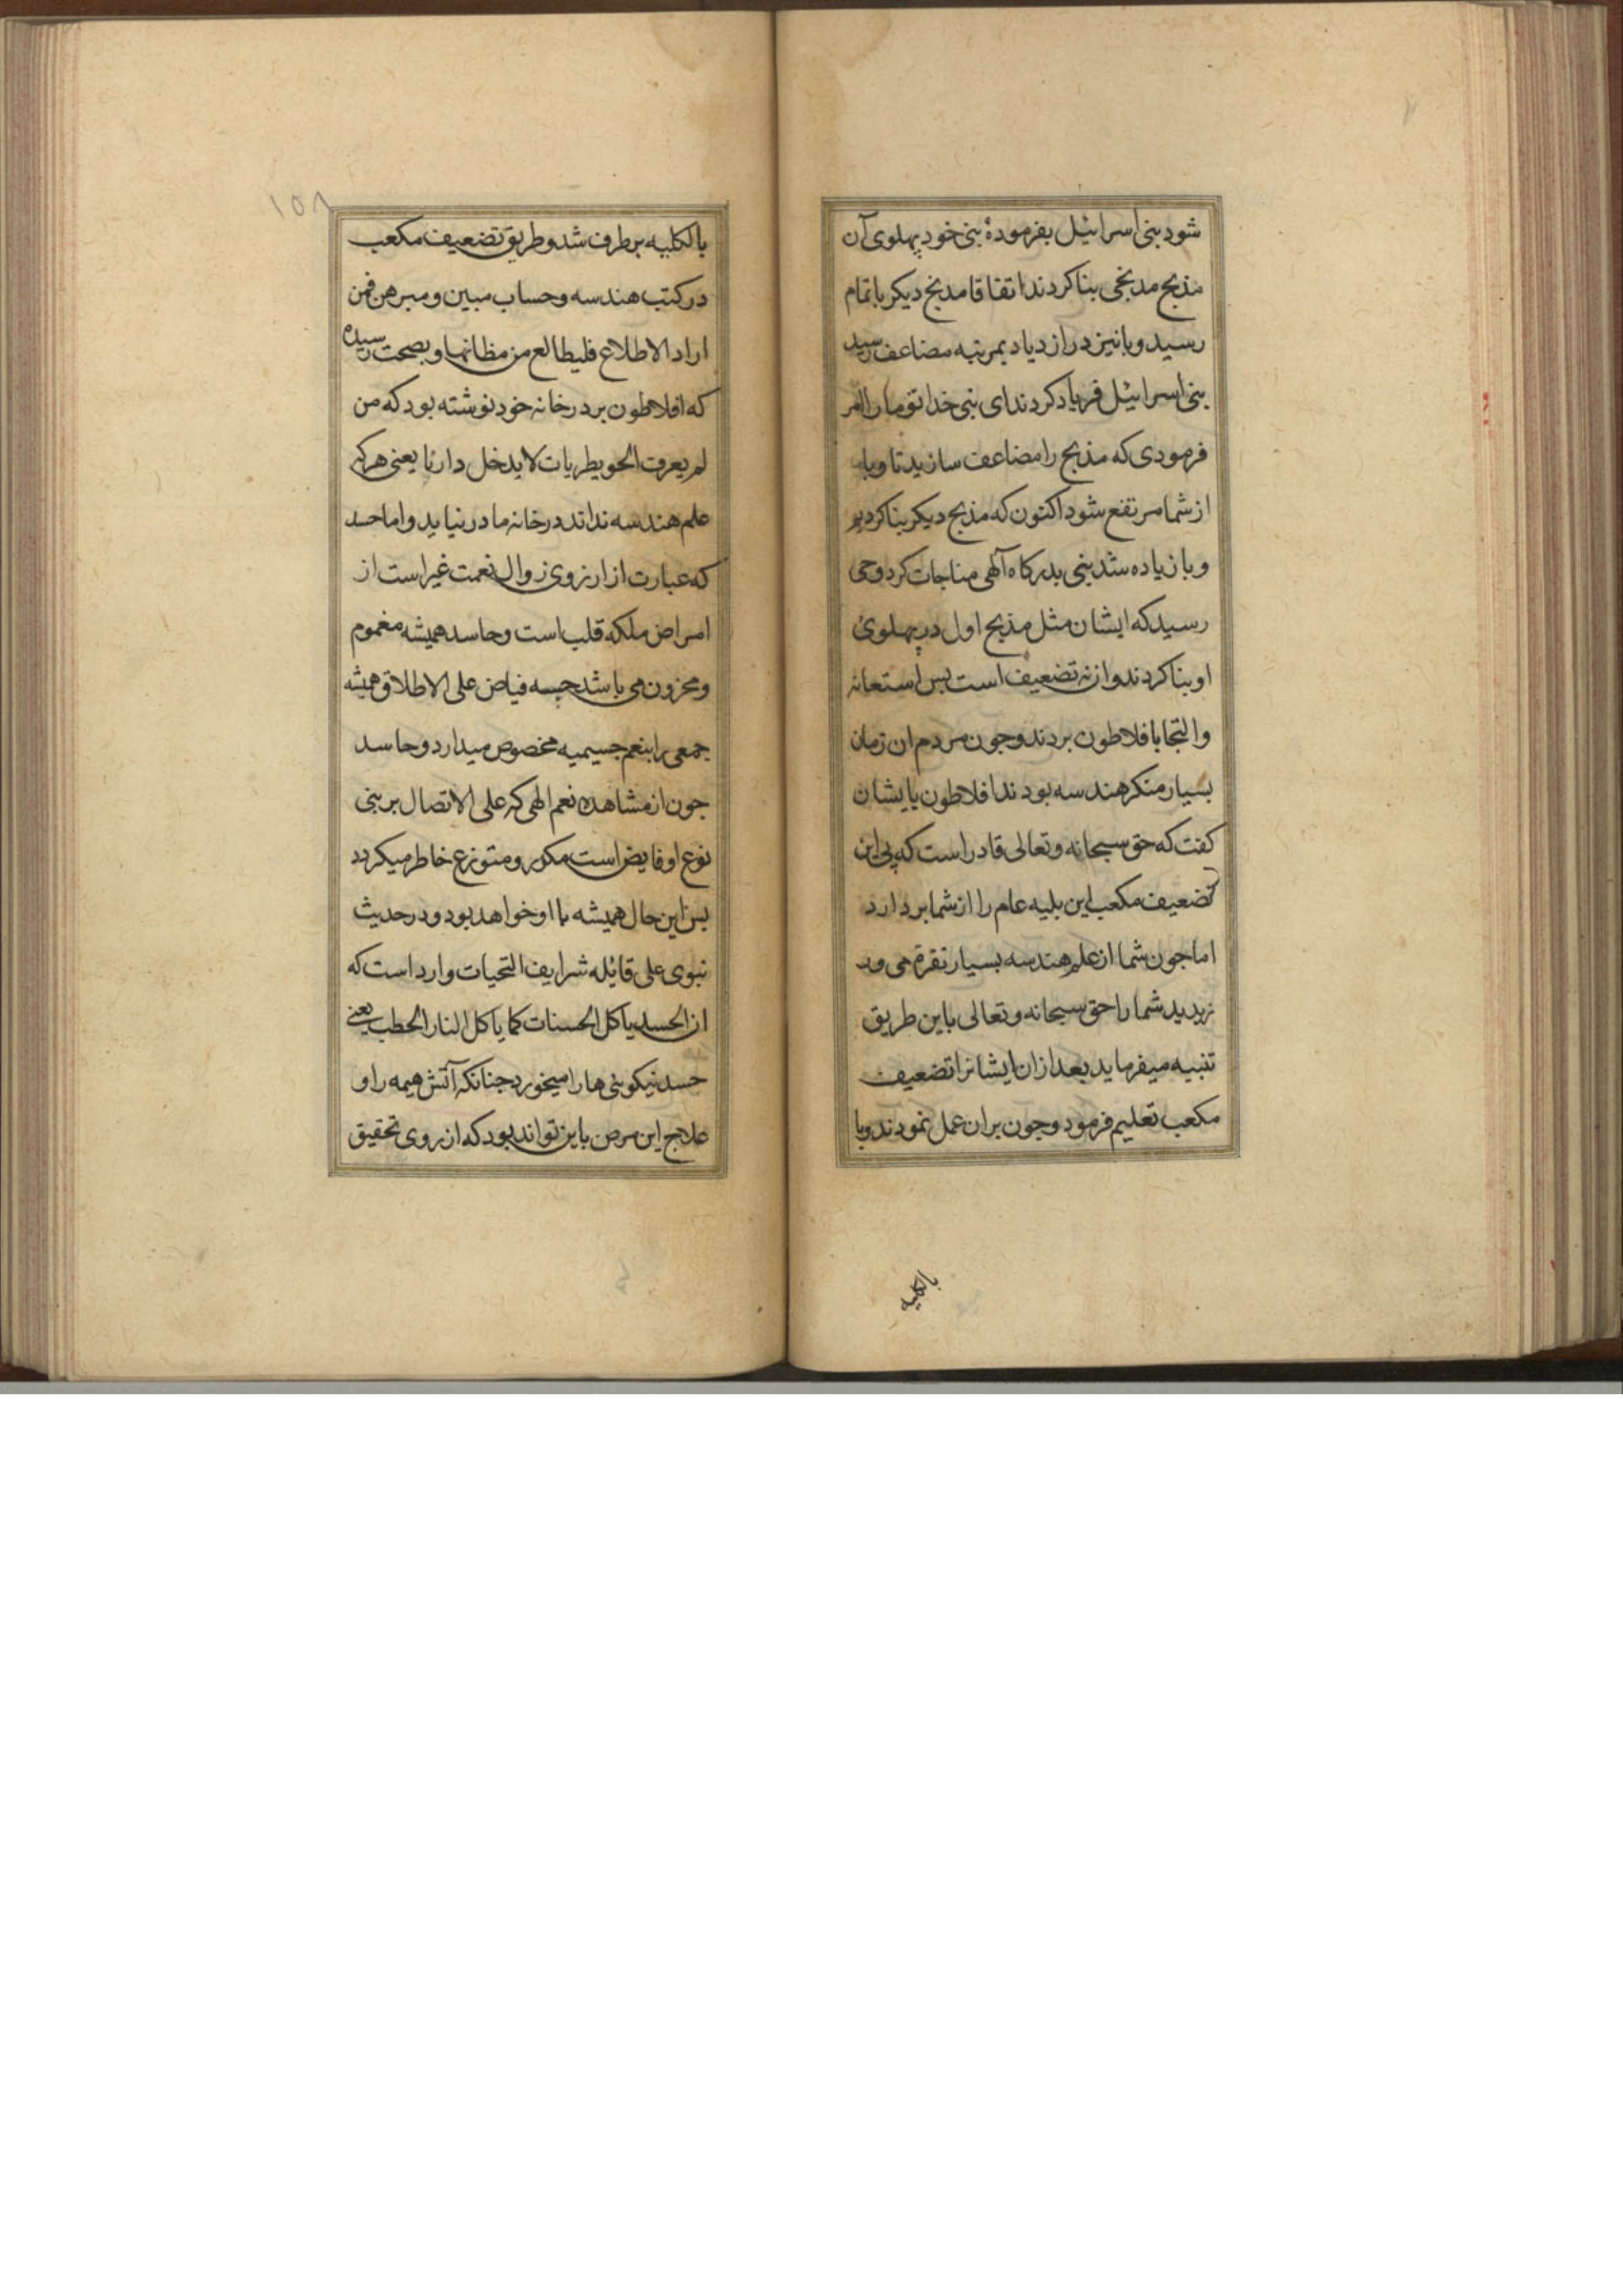 شود بنی اسرائیل بفرمودهٔ بنی خود پهلوی آن
مذبح مذبحی بنا کردند اتفاقا مذبح دیکر باتمام
رسید و وبا نیز در ازدیاد بمرتبه مضاعف رسید
بنی اسرائیل فریاد کردند ای بنی خدا تو ما را امر
فرمودی که مذبح را مضاعف سازید تا وبا
از شما مرتفع شود اکنون که مذبح دیکر بنا کردیم
وبا زیاده شد بنی بدرکاه آلهی مناجات کرد وحی
رسید که ایشان مثل مذبح اول در پهلوی
او بنا کردند و از نه تضعیف است پس استعانه
و التجا بافلاطون بردند و جون مردم ان زمان
بسیار منکر هندسه بودند افلاطون بایشان
کفت که حق سبحانه وتعالی قادر است که بی این
تضعیف مکعب این بلیه عام را از شما بر دارد
اما جون شما از علم هندسه بسیار نفرة می ور
زیدید شما را حق سبحانه و تعالی باین طریق
تنبیه میفرماید بعد از ان ایشانرا تضعیف
مکعب تعلیم فرمود و جون بران عمل نمودند وبا
بالکلیه
١٥٨
بالکلیه بر طرف شد و طریق تضعیف مکعب
در کتب هندسه و حساب مبین و مبرهن فمن
اراد الاطلاع فلیطالع من مظانها و بصحت رسیده
که افلاطون بر در خانه خود نوشته بود که من
لم یعرف الجویطریات لا یدخل دارنا یعنی هر که
علم هندسه نداند در خانه ما در نیاید و اما حسد
که عبارت از ارزوی زوال نعمت غیر است از
امراض ملکه قلب است و حاسد همیشه مغموم
و محزون می باشد جسه فیاض علی الاطلاق همیشه
جمعی را بنعم جسیمیه مخصوص میدارد و حاسد
جون از مشاهده نعم الهی که علی الاتصال بر بنی
نوع او فایض است مکور و متوزع خاطر میکردد
پس این حال همیشه با او خواهد بود و در حدیث
نبوی علی قائله شرایف التحیات وارد است که
ان الحسد یاکل الحسنات کما یاکل النار الحطب یعنی
حسد نیکویی ها را میخورد جنانکه آتش هیمه را و
علاج این مرض باین تواند بود که از روی تحقیق